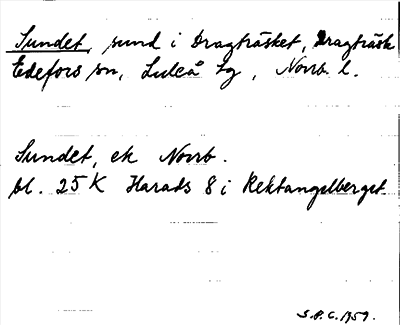 Sundet, sund i Dragträsket, Dragträsk
Edefors sn, Luleå lg, Norrb. l.
Sundet, ek Norrb.
bl. 25 K Harads 8 i Rektangelberget.
S.P.C. 1959.